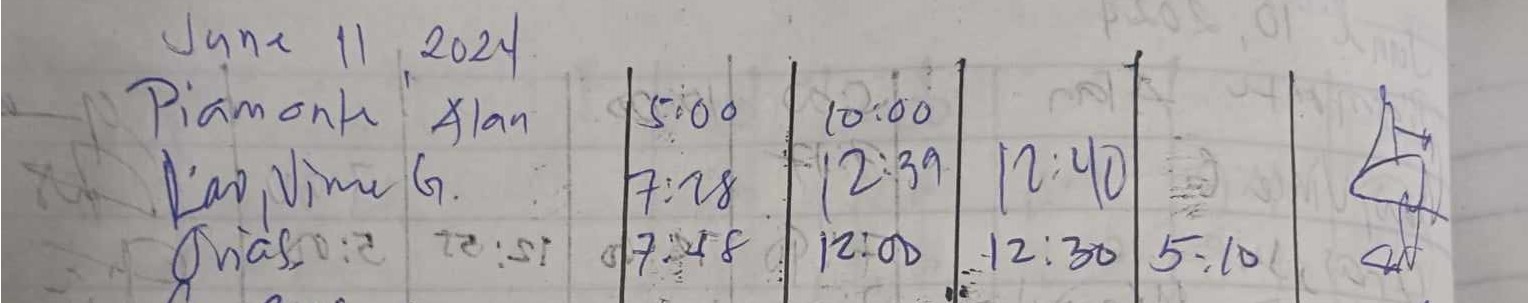 June 11, 2024
Piamonte Alan 5:00 10:00
Lao, Vince G. 7:28 12:39 12:40
Orias 7:48 12:00 12:30 5:10